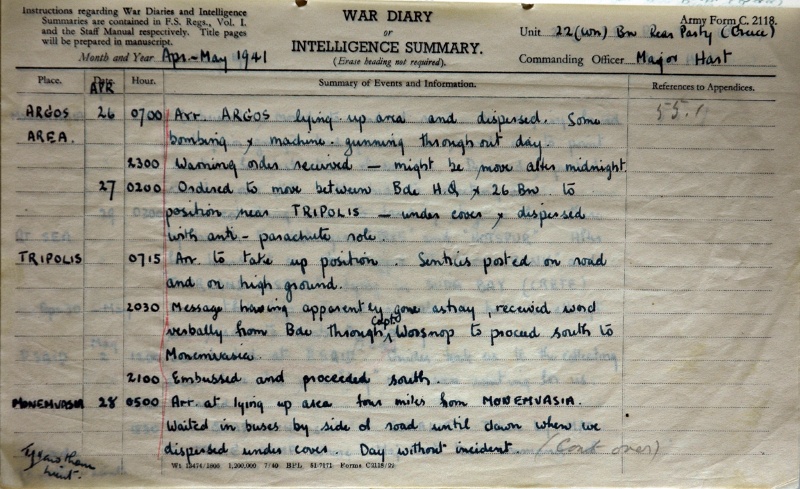 Instructions regarding War Diaries and Intelligence
Summaries are contained in F.S. Regs., Vol. I.
and the Staff Manual respectively. Title pages
will be prepared in manuscript.
WAR DIARY
or
INTELLIGENCE SUMMARY.
(Erase heading not required).
Army Form C. 2118.
Unit 22 (WN) Bn Rear Party (Greece)
Month and Year Apr - May 1941
Commanding Officer Major Hart
Place. Date. Hour. Summary of Events and Information. References to Appendices.
APR
ARGOS 26 0700 Arr. ARGOS lying up area and dispersed. Some 55.1
AREA. bombing & machine-gunning throughout day.
2300 Warning order received — might be move after midnight.
27 0200 Ordered to move between Bde H.Q & 26 Bn to
position near TRIPOLIS — under cover & dispersed
with anti-parachute role.
TRIPOLIS 0715 Arr. to take up position. Sentries posted on road
and on high ground.
2030 Message having apparently gone astray, received word
verbally from Bde through Capt Worsnop to proceed south to
Monemvasia.
2100 Embussed and proceeded south.
MONEMVASIA 28 0500 Arr. at lying up area four miles from MONEMVASIA.
Waited in buses by side of road until dawn when we
dispersed under cover. Day without incident. (Cont over)
Lieut.
Wt 13474/1805 1,200,000 7/40 BPL 51/7171 Forms C2118/22